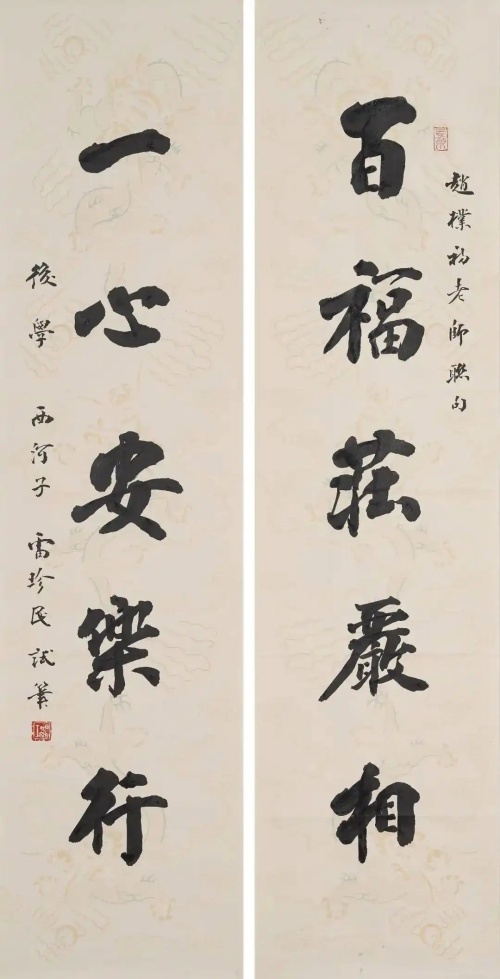 趙樸初老師聯句
百福莊嚴相
一心安樂行
後學 西河子 雷珍民試筆